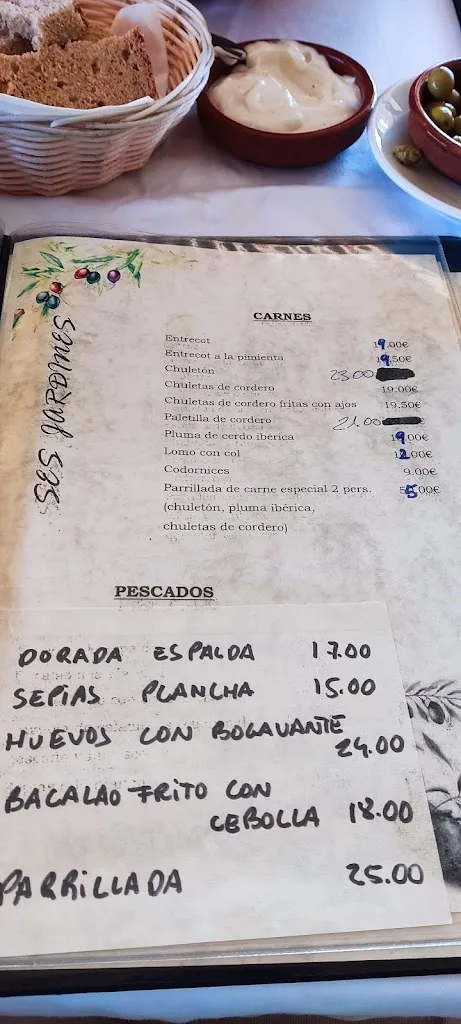 SES JARDINES
CARNES
Entrecot 19.00€
Entrecot a la pimienta 19.50€
Chuletón 23.00
Chuletas de cordero 19.00€
Chuletas de cordero fritas con ajos 19.50€
Paletilla de cordero 21.00
Pluma de cerdo ibérica 19.00€
Lomo con col 12.00€
Codornices 9.00€
Parrillada de carne especial 2 pers. 55.00€
(chuletón, pluma ibérica,
chuletas de cordero)
PESCADOS
DORADA ESPALDA 17.00
SEPIAS PLANCHA 15.00
HUEVOS CON BOGAVANTE
24.00
BACALAO FRITO CON
CEBOLLA 18.00
PARRILLADA 25.00